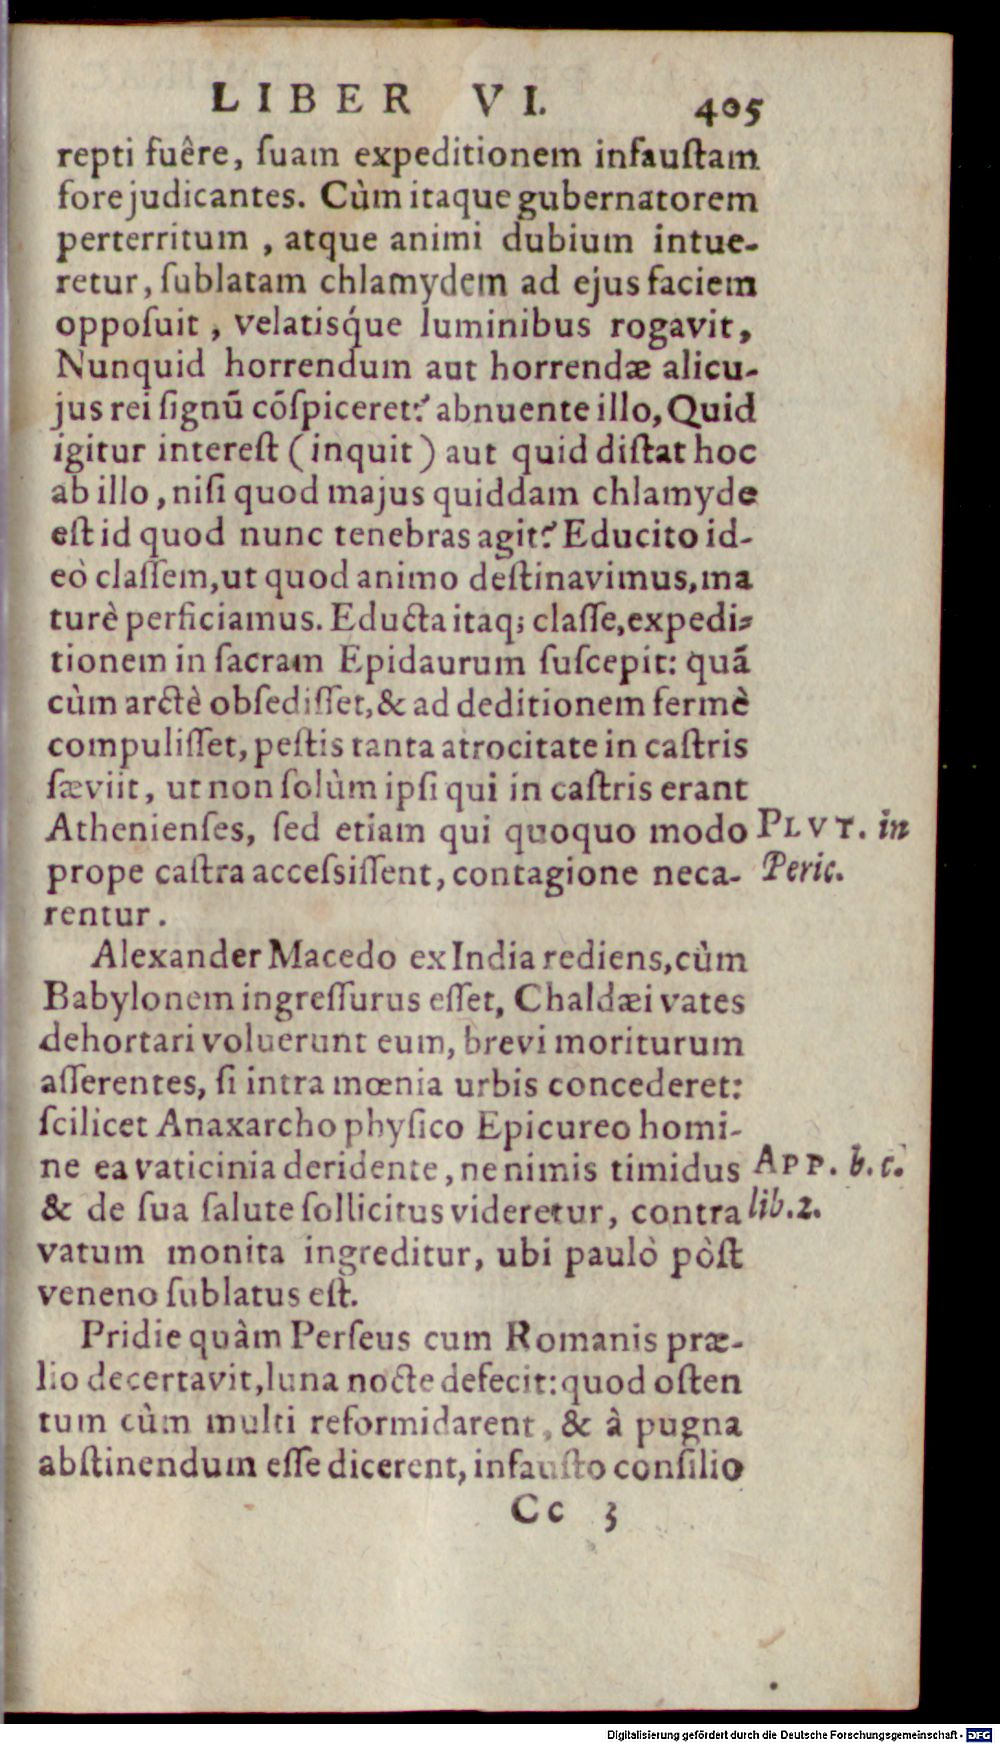 LIBER VI. 405
repti fuêre, ſuam expeditionem infauſtam
fore judicantes. Cùm itaque gubernatorem
perterritum, atque animi dubium intue-
retur, ſublatam chlamydem ad ejus faciem
oppoſuit, velatisq́ue luminibus rogavit,
Nunquid horrendum aut horrendæ alicu-
jus rei ſignũ cõſpiceret? abnuente illo, Quid
igitur intereſt (inquit) aut quid diſtat hoc
ab illo, niſi quod majus quiddam chlamyde
eſt id quod nunc tenebras agit? Educito id-
eò claſſem, ut quod animo deſtinavimus, ma
turè perficiamus. Educta itaq; claſſe, expedi-
tionem in ſacram Epidaurum ſuſcepit: quã
cùm arctè obſediſſet, & ad deditionem fermè
compuliſſet, peſtis tanta atrocitate in caſtris
ſæviit, ut non ſolùm ipſi qui in caſtris erant
Athenienſes, ſed etiam qui quoquo modo
prope caſtra acceſsiſſent, contagione neca-
rentur.
PLVT. in
Peric.
Alexander Macedo ex India rediens, cùm
Babylonem ingreſſurus eſſet, Chaldæi vates
dehortari voluerunt eum, brevi moriturum
aſſerentes, ſi intra mœnia urbis concederet:
ſcilicet Anaxarcho phyſico Epicureo homi-
ne ea vaticinia deridente, ne nimis timidus
& de ſua ſalute ſollicitus videretur, contra
vatum monita ingreditur, ubi paulò pòſt
veneno ſublatus eſt.
APP. b. c.
lib. 2.
Pridie quàm Perſeus cum Romanis præ-
lio decertavit, luna nocte defecit: quod oſten
tum cùm multi reformidarent, & à pugna
abſtinendum eſſe dicerent, infauſto conſilio
Cc 3
Digitalisierung gefördert durch die Deutsche Forschungsgemeinschaft - DFG